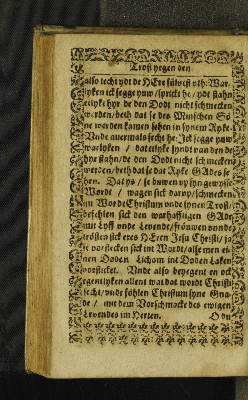 Trost yegen den
also secht ydt de HEre sülvest uth: War-
lyken ick segge yuw / sprickt he / ydt stahn
etlyke hyr de den Dodt nicht schmecken
werden / beth dat se des Minschen Sö-
ne werden kamen sehen in synem Ryke.
Unde auermals secht he: Ick segge yuw
warlyken / dat etlyke syndt van den de
hyr stahn / de den Dodt nicht schmecken
werden / beth dat se dat Ryke GAdes se-
hen. Dat ys / se buwen up syn gewysse
Wordt / wagen sick darup / schmecken
im Wordt Christum unde synen Trost /
befehlen sick dem warhafftigen GAde
mit Lyff unde Levende / fröuwen unde
trösten sick eres HEren Jesu Christi /
vorstecken sick int Wordt / alse men ei-
nen Doden Licham int Doden Laken
vorsticket. Unde also beyegent en
yegentlyken allent wat dat wordt Christi
secht / unde föhlen Christum syne Gna-
de / mit dem Vorschmacke des ewigen
Levendes im Herten.
O du